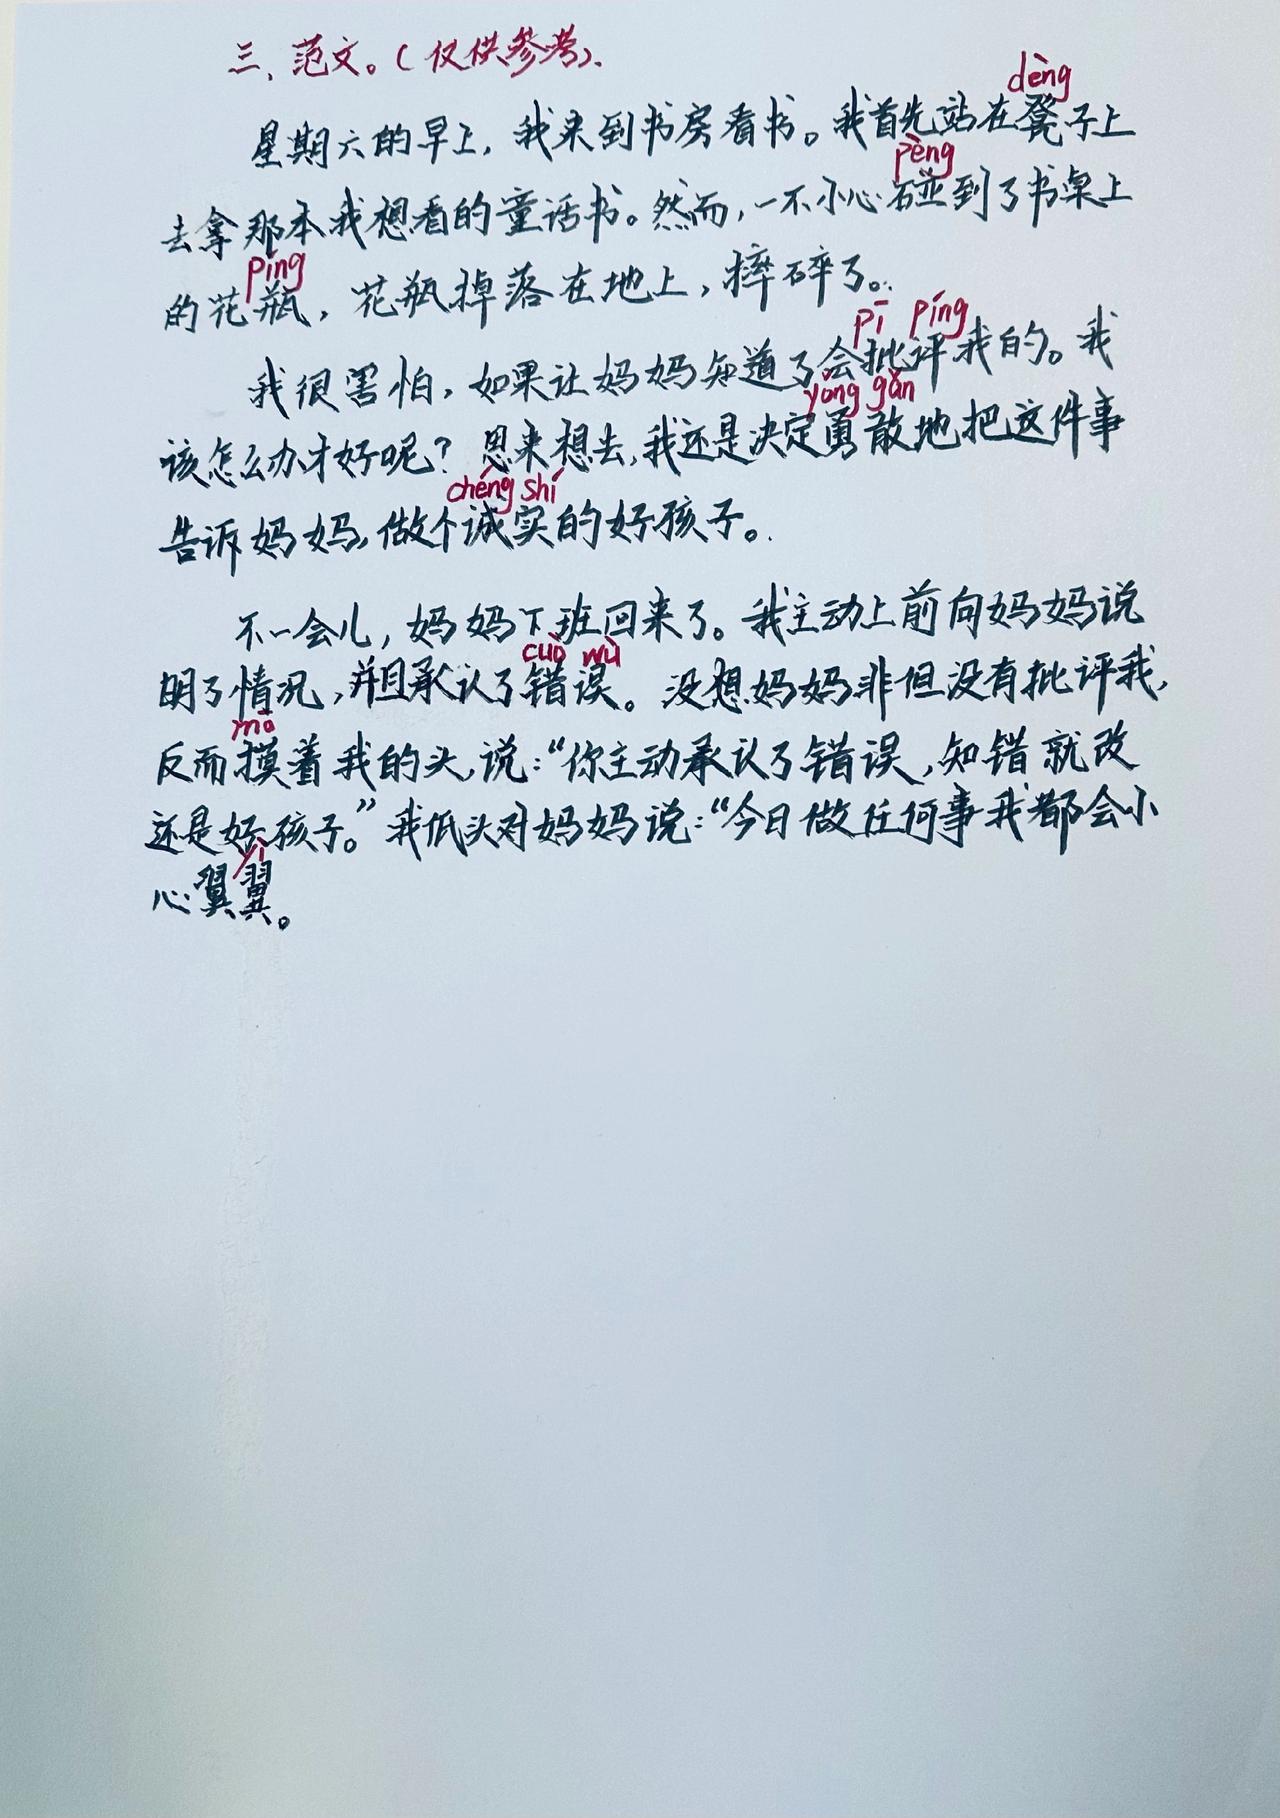 三、范文。(仅供参考).
dèng
星期六的早上,我来到书房看书。我首先站在凳子上
pèng
去拿那本我想看的童话书。然而,一不小心碰到了书桌上
píng
的花瓶,花瓶掉落在地上,摔碎了。
pī píng
我很害怕,如果让妈妈知道了会批评我的。我
yǒng gǎn
该怎么办才好呢?思来想去,我还是决定勇敢地把这件事
chéng shí
告诉妈妈,做个诚实的好孩子。
不一会儿,妈妈下班回来了。我主动上前向妈妈说
cuò wù
明了情况,并且承认了错误。没想妈妈非但没有批评我,
mō
反而摸着我的头,说:“你主动承认了错误,知错就改
还是好孩子。”我低头对妈妈说:“今日做任何事我都会小
yì
心翼翼。